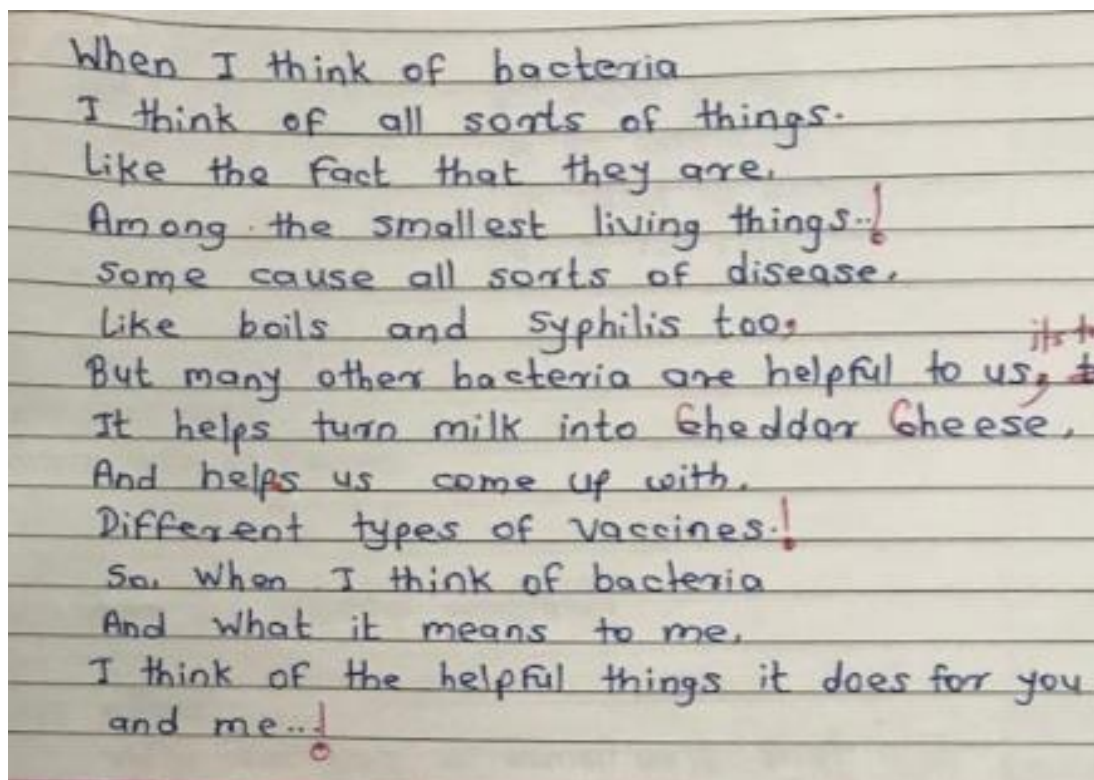 When I think of bacteria
I think of all sorts of things.
Like the fact that they are,
Among the smallest living things..!
Some cause all sorts of disease,
Like boils and syphilis too,
But many other bacteria are helpful to us,
It helps turn milk into Cheddar Cheese,
And helps us come up with,
Different types of vaccines.!
So, When I think of bacteria
And What it means to me,
I think of the helpful things it does for you
and me..!